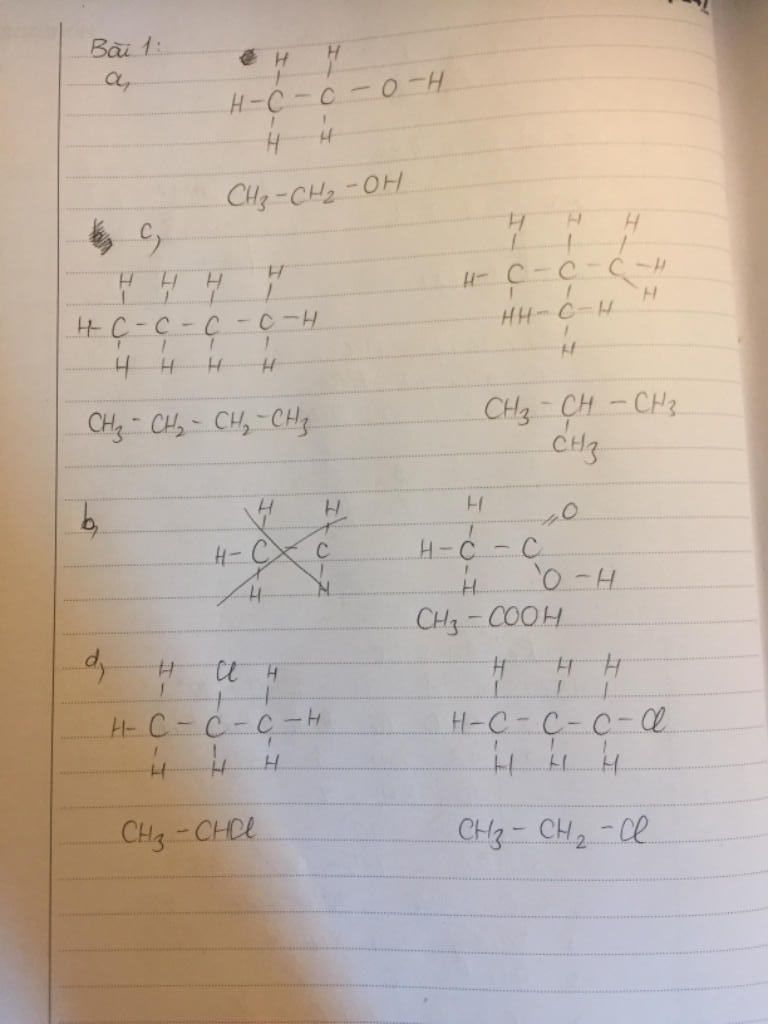 Bài 1:
a,
H H
H - C - C - O - H
H H
CH3 - CH2 - OH
c,
H H H H
H - C - C - C - C - H
H H H H
CH3 - CH2 - CH2 - CH3
H H H
H - C - C - C - H
H
HH - C - H
H
CH3 - CH - CH3
CH3
b,
H H
H - C - C
H H
H O
H - C - C
H O - H
CH3 - COOH
d,
H Cl H
H - C - C - C - H
H H H
CH3 - CHCl
H H H
H - C - C - C - Cl
H H H
CH3 - CH2 - Cl